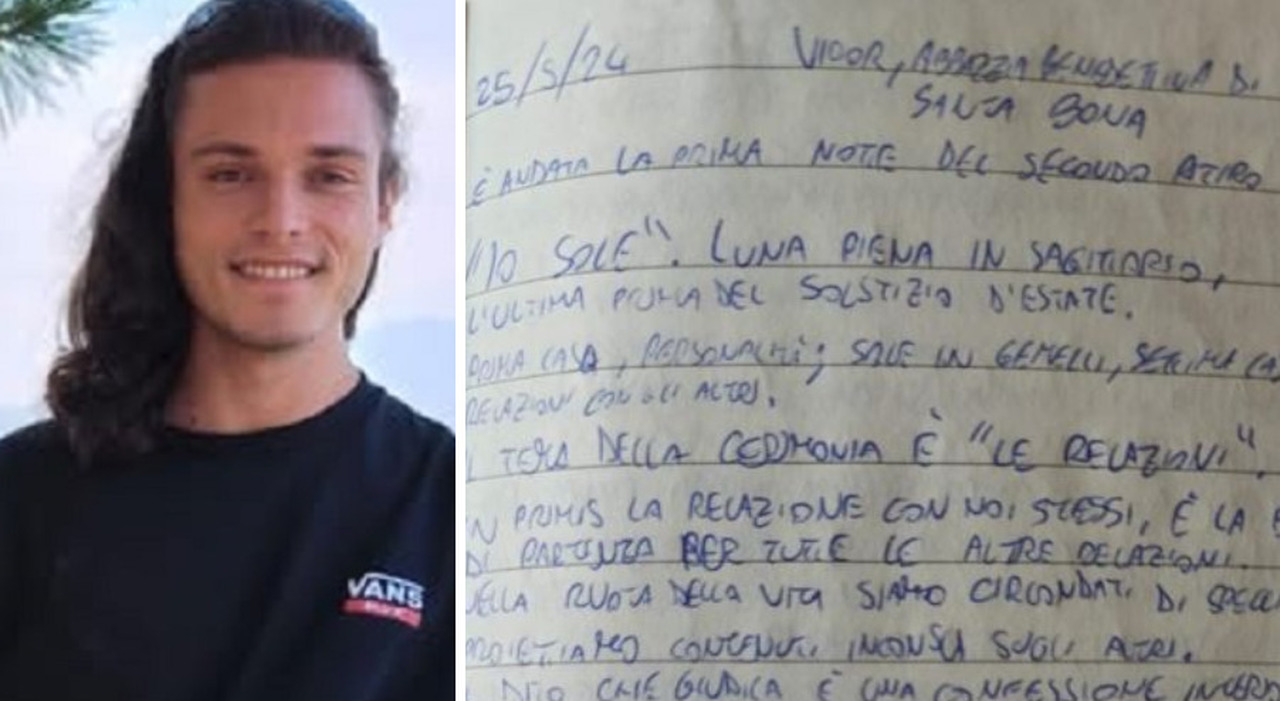 VANS
25/5/24
VIDOR, ABBAZIA BENEDETTINA DI
SANTA BONA
È ANDATA LA PRIMA NOTTE DEL SECONDO RITIRO
"IO SOLE". LUNA PIENA IN SAGITTARIO,
L'ULTIMA PRIMA DEL SOLSTIZIO D'ESTATE.
PRIMA CASA, PERSONALITÀ; SOLE IN GEMELLI, SETTIMA CA
RELAZIONI CON GLI ALTRI.
TEMA DELLA CERIMONIA È "LE RELAZIONI".
IN PRIMIS LA RELAZIONE CON NOI STESSI, È LA
DI PARTENZA PER TUTTE LE ALTRE RELAZIONI.
NELLA RUOTA DELLA VITA SIAMO CIRCONDATI DI SPECC
PROIETTIAMO CONTENUTI INCONSCI SUGLI ALTRI.
DITO CHE GIUDICA È UNA CONFESSIONE